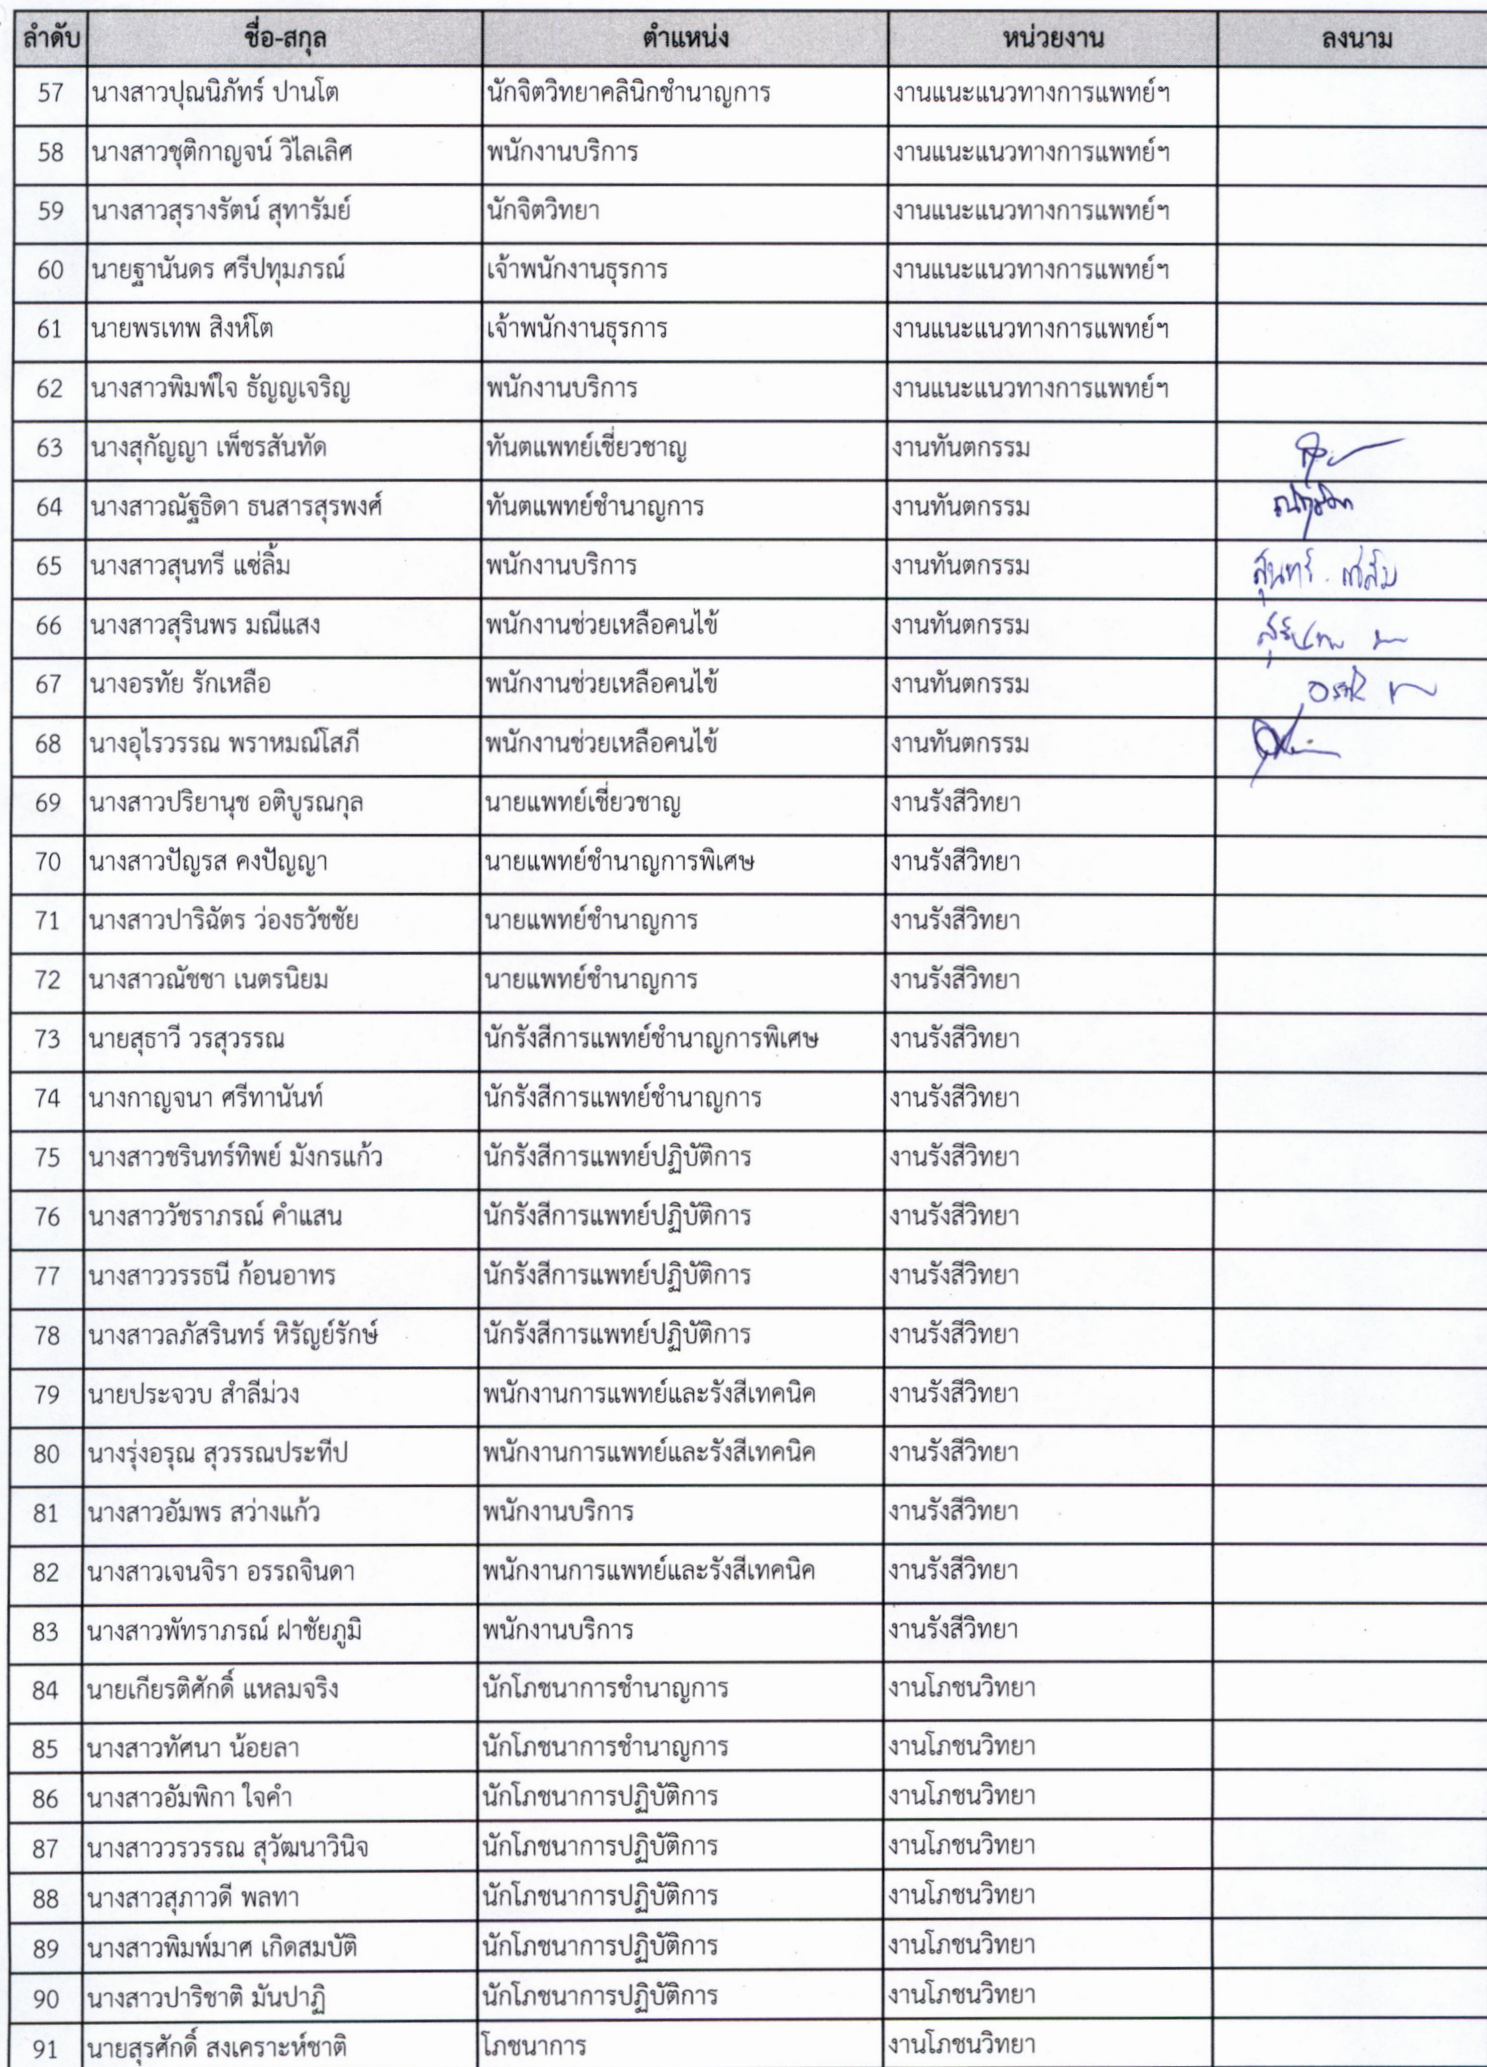 ลำดับ ชื่อ-สกุล ตำแหน่ง หน่วยงาน ลงนาม
57 นางสาวปุณนิภัทร์ ปานโต นักจิตวิทยาคลินิกชำนาญการ งานแนะแนวทางการแพทย์ฯ
58 นางสาวชุติกาญจน์ วิไลเลิศ พนักงานบริการ งานแนะแนวทางการแพทย์ฯ
59 นางสาวสุรางรัตน์ สุทารัมย์ นักจิตวิทยา งานแนะแนวทางการแพทย์ฯ
60 นายฐานันดร ศรีปทุมภรณ์ เจ้าพนักงานธุรการ งานแนะแนวทางการแพทย์ฯ
61 นายพรเทพ สิงห์โต เจ้าพนักงานธุรการ งานแนะแนวทางการแพทย์ฯ
62 นางสาวพิมพ์ใจ ธัญญเจริญ พนักงานบริการ งานแนะแนวทางการแพทย์ฯ
63 นางสุกัญญา เพ็ชรสันทัด ทันตแพทย์เชี่ยวชาญ งานทันตกรรม
64 นางสาวณัฐธิดา ธนสารสุรพงศ์ ทันตแพทย์ชำนาญการ งานทันตกรรม
65 นางสาวสุนทรี แซ่ลิ้ม พนักงานบริการ งานทันตกรรม
66 นางสาวสุรินพร มณีแสง พนักงานช่วยเหลือคนไข้ งานทันตกรรม
67 นางอรทัย รักเหลือ พนักงานช่วยเหลือคนไข้ งานทันตกรรม
68 นางอุไรวรรณ พราหมณ์โสภี พนักงานช่วยเหลือคนไข้ งานทันตกรรม
69 นางสาวปริยานุช อติบูรณกุล นายแพทย์เชี่ยวชาญ งานรังสีวิทยา
70 นางสาวปัญรส คงปัญญา นายแพทย์ชำนาญการพิเศษ งานรังสีวิทยา
71 นางสาวปาริฉัตร ว่องธวัชชัย นายแพทย์ชำนาญการ งานรังสีวิทยา
72 นางสาวณัชชา เนตรนิยม นายแพทย์ชำนาญการ งานรังสีวิทยา
73 นายสุธาวี วรสุวรรณ นักรังสีการแพทย์ชำนาญการพิเศษ งานรังสีวิทยา
74 นางกาญจนา ศรีทานันท์ นักรังสีการแพทย์ชำนาญการ งานรังสีวิทยา
75 นางสาวชรินทร์ทิพย์ มังกรแก้ว นักรังสีการแพทย์ปฏิบัติการ งานรังสีวิทยา
76 นางสาววัชราภรณ์ คำแสน นักรังสีการแพทย์ปฏิบัติการ งานรังสีวิทยา
77 นางสาววรรธนี ก้อนอาทร นักรังสีการแพทย์ปฏิบัติการ งานรังสีวิทยา
78 นางสาวลภัสรินทร์ หิรัญย์รักษ์ นักรังสีการแพทย์ปฏิบัติการ งานรังสีวิทยา
79 นายประจวบ สำลีม่วง พนักงานการแพทย์และรังสีเทคนิค งานรังสีวิทยา
80 นางรุ่งอรุณ สุวรรณประทีป พนักงานการแพทย์และรังสีเทคนิค งานรังสีวิทยา
81 นางสาวอัมพร สว่างแก้ว พนักงานบริการ งานรังสีวิทยา
82 นางสาวเจนจิรา อรรถจินดา พนักงานการแพทย์และรังสีเทคนิค งานรังสีวิทยา
83 นางสาวพัทราภรณ์ ฝาชัยภูมิ พนักงานบริการ งานรังสีวิทยา
84 นายเกียรติศักดิ์ แหลมจริง นักโภชนาการชำนาญการ งานโภชนวิทยา
85 นางสาวทัศนา น้อยลา นักโภชนาการชำนาญการ งานโภชนวิทยา
86 นางสาวอัมพิกา ใจคำ นักโภชนาการปฏิบัติการ งานโภชนวิทยา
87 นางสาววรวรรณ สุวัฒนาวินิจ นักโภชนาการปฏิบัติการ งานโภชนวิทยา
88 นางสาวสุภาวดี พลทา นักโภชนาการปฏิบัติการ งานโภชนวิทยา
89 นางสาวพิมพ์มาศ เกิดสมบัติ นักโภชนาการปฏิบัติการ งานโภชนวิทยา
90 นางสาวปาริชาติ มันปาฏิ นักโภชนาการปฏิบัติการ งานโภชนวิทยา
91 นายสุรศักดิ์ สงเคราะห์ชาติ โภชนาการ งานโภชนวิทยา